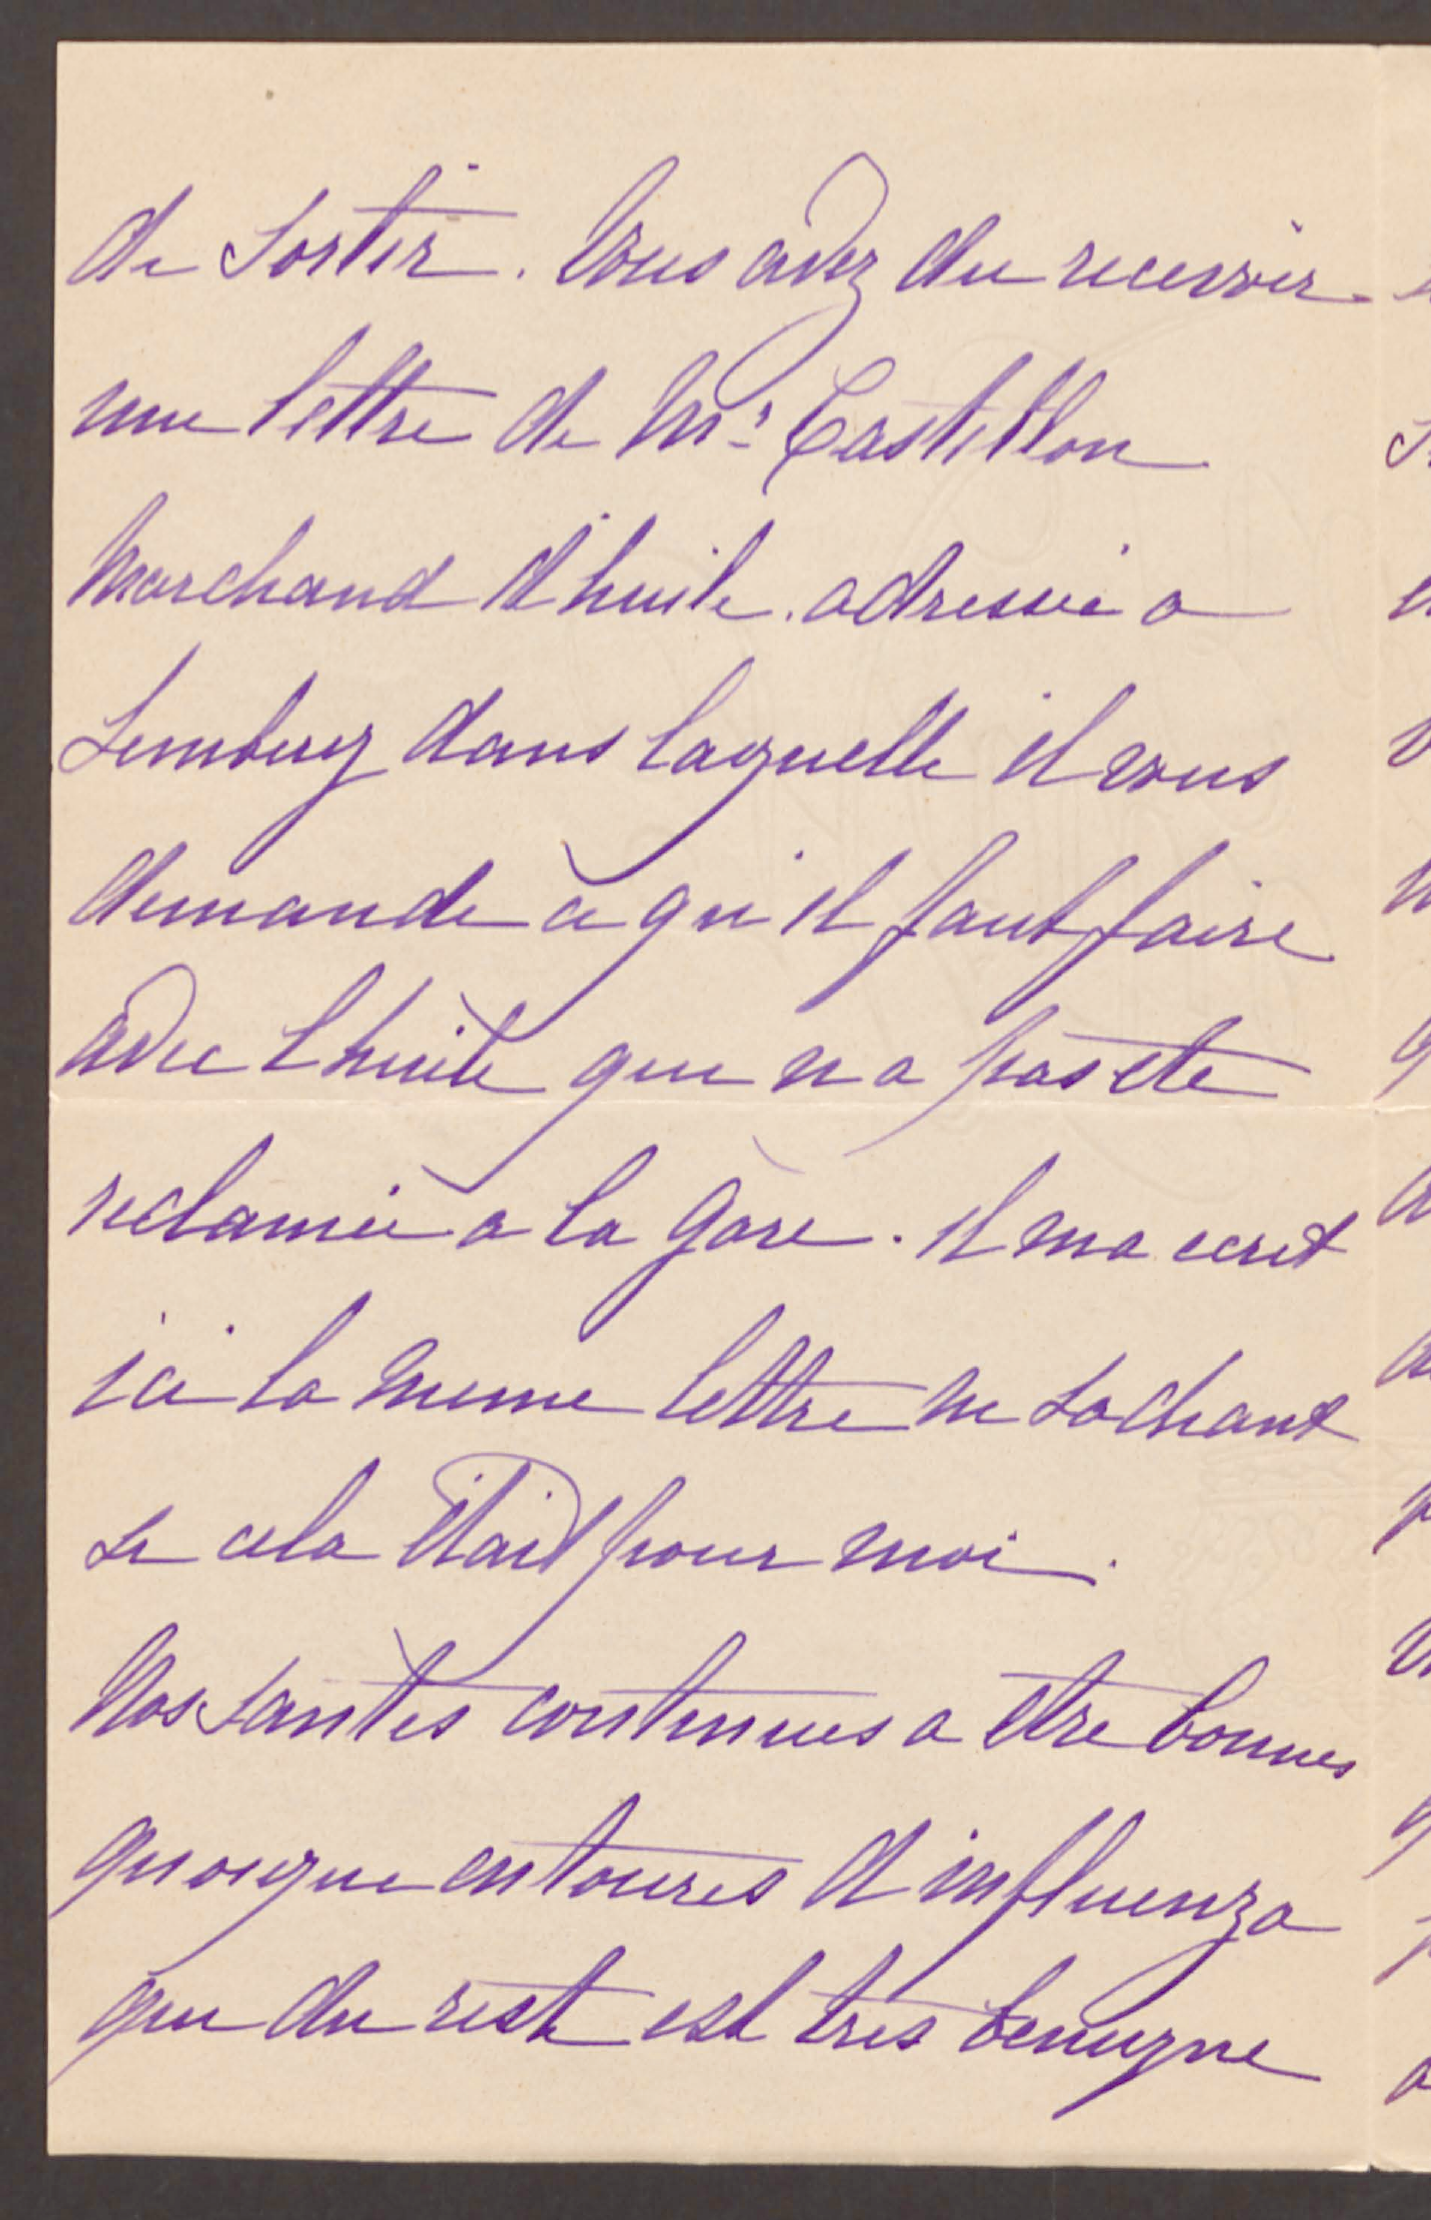 de sortir. Vous avez du recevoir
une lettre de Mr Castillon
Marchand d'huile. adressée a
Lemberg dans laquelle il vous
demande ce qu'il faut faire
avec l'huile que n a pas ete
reclamée a la gare. il m a ecrit
ici la meme lettre ne sachant
si cela était pour moi.
Nos santés continues a etre bonnes
quoique entoures d influenza
qui du reste est très benigne